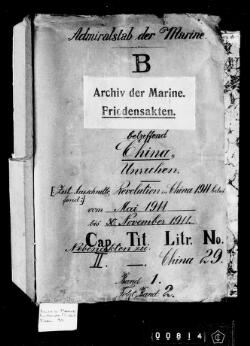 Admiralstab der Marine.
B
Archiv der Marine.
Friedensakten.
betreffend
China,
Unruhen.
[Zeit. Ausschnitte, Revolution in China 1911 betref-
fend:]
vom Mai 1911
bis 30. November 1911.
Cap. Tit. Litr. No.
Nebenakten zu
II. China 29.
Band 1.
Folgt Band 2.
00814